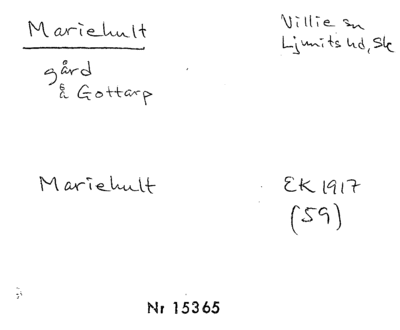 Mariehult
Villie sn
Ljunits hd, Sk
gård
å Gottarp
Mariehult
EK 1917
(59)
Nr 15365